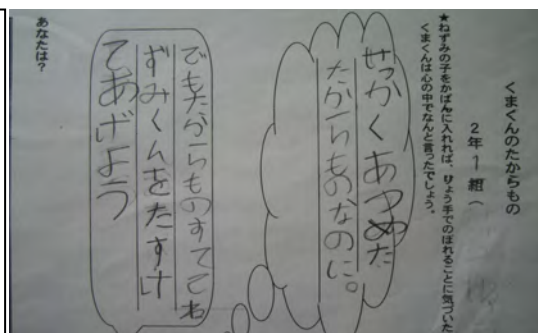 くまくんのたからもの
2年1組（
★ねずみの子をかばんに入れれば、りょう手でのぼれることに気づいた
くまくんは心の中でなんと言ったでしょう。
せっかくあつめた
たからものなのに。
でもたからものすててね
ずみくんをたすけ
てあげよう
あなたは？